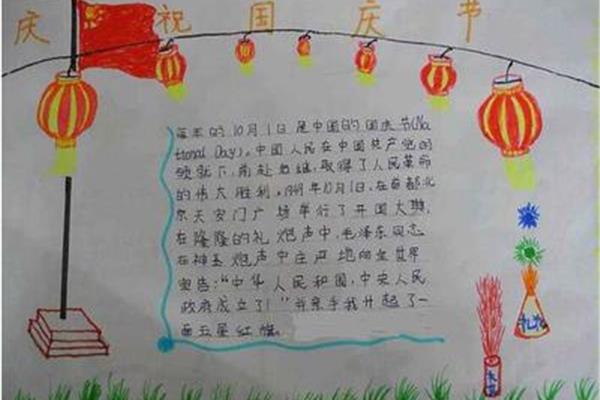 庆祝国庆节
每年的10月1日是中国的国庆节(Na
tional Day)。中国人民在中国共产党的
领导下,前赴后继,取得了人民革命
的伟大胜利。1949年10月1日,在首都北
京天安门广场举行了开国大典,
在隆隆的礼炮声中,毛泽东同志
在神圣炮声中庄严地向全世界
宣告:“中华人民和国,中央人民
政府成立了!”并亲手我升起了一
面五星红旗。
礼花